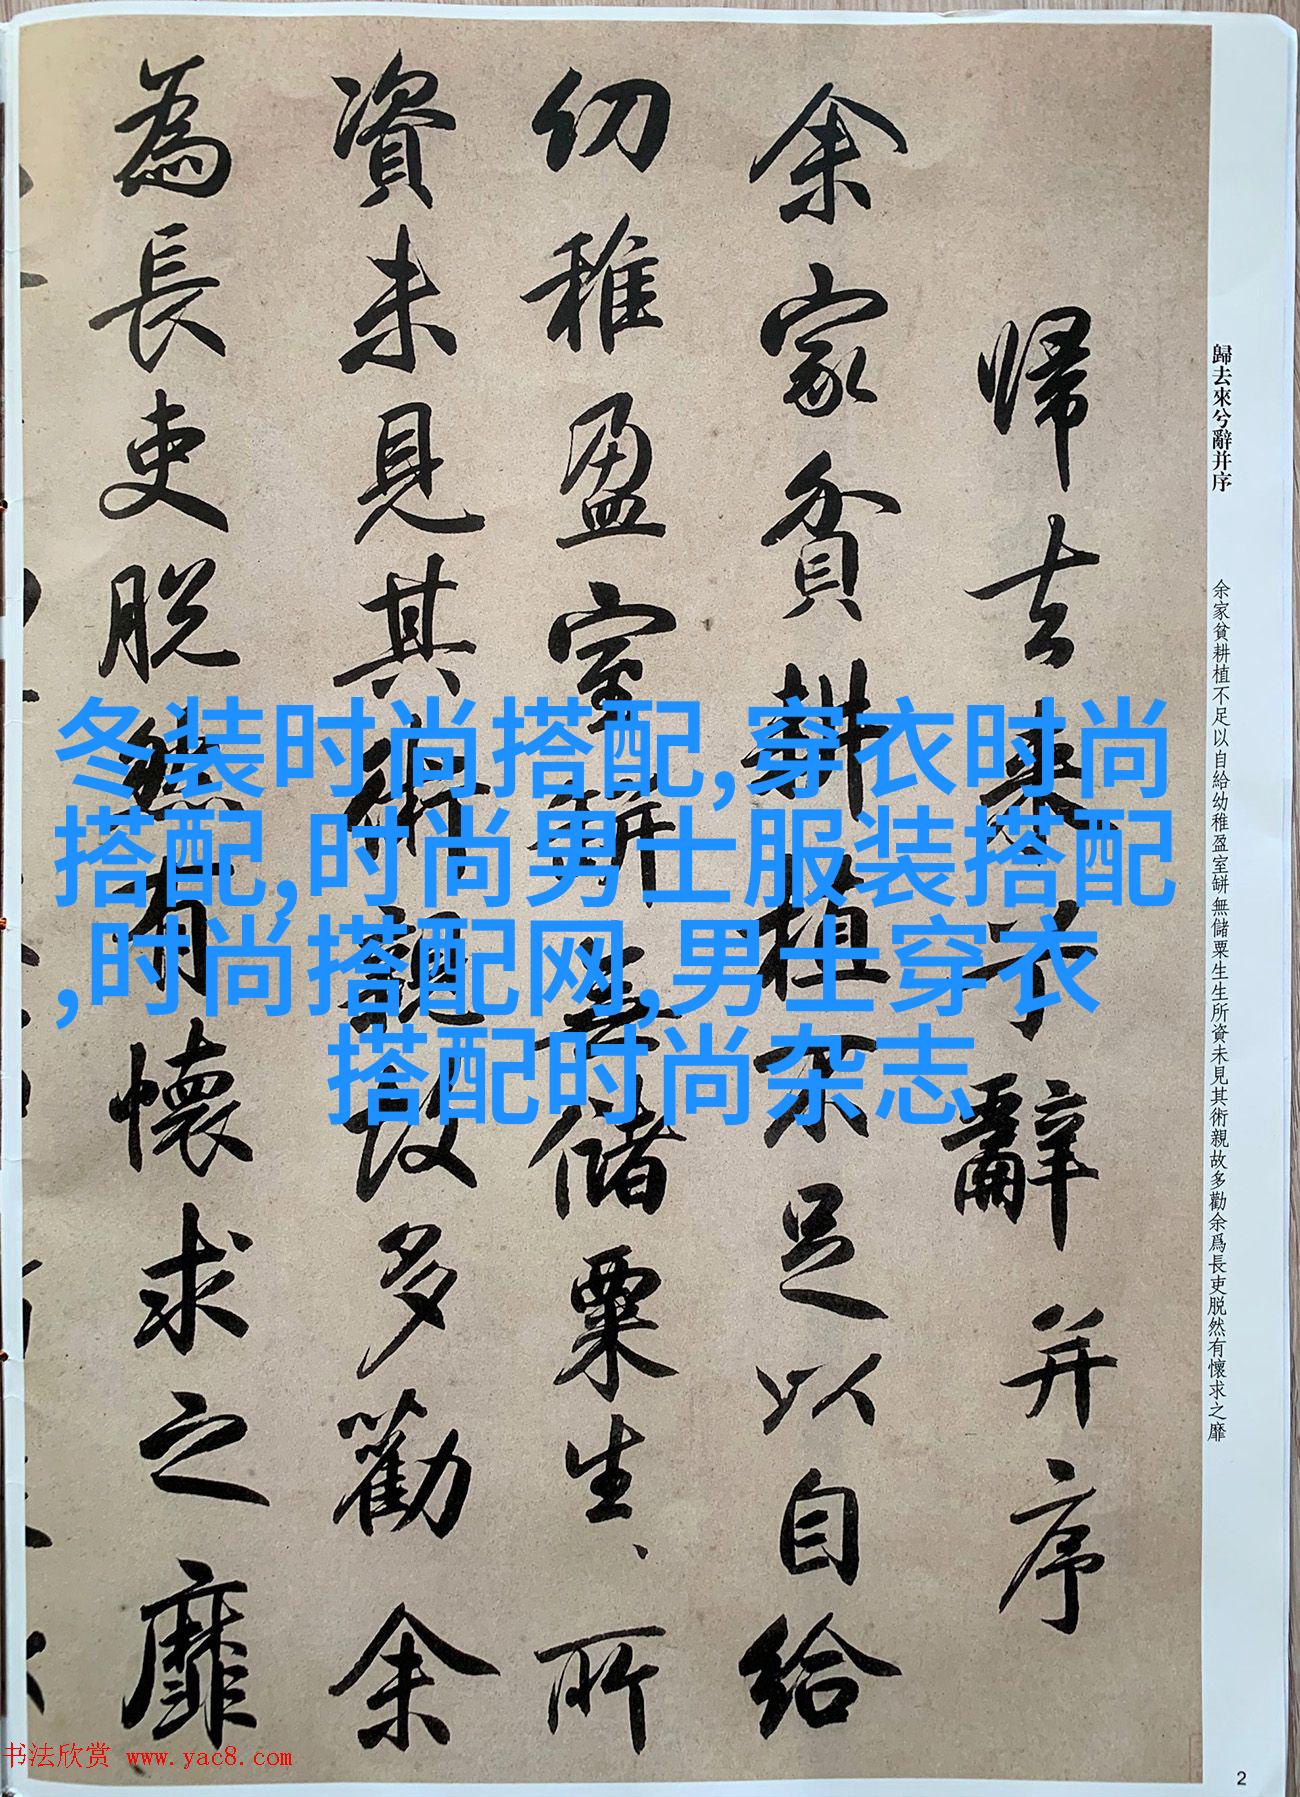 歸去來兮辭并序
余家貧耕植不足以自給幼稚盈室缾無儲粟生生所資未見其術親故多勸余爲長吏脱然有懷求之靡
归去来兮辭并序
余家貧耕植不足以自給
幼稚盈室缾無儲粟生、所
資未見其術親故多勸余
為長吏脱然有懷求之靡
冬装时尚搭配,穿衣时尚
搭配,时尚男士服装搭配
,时尚搭配网,男士穿衣
搭配时尚杂志
书法欣赏 www.yac8.com
2